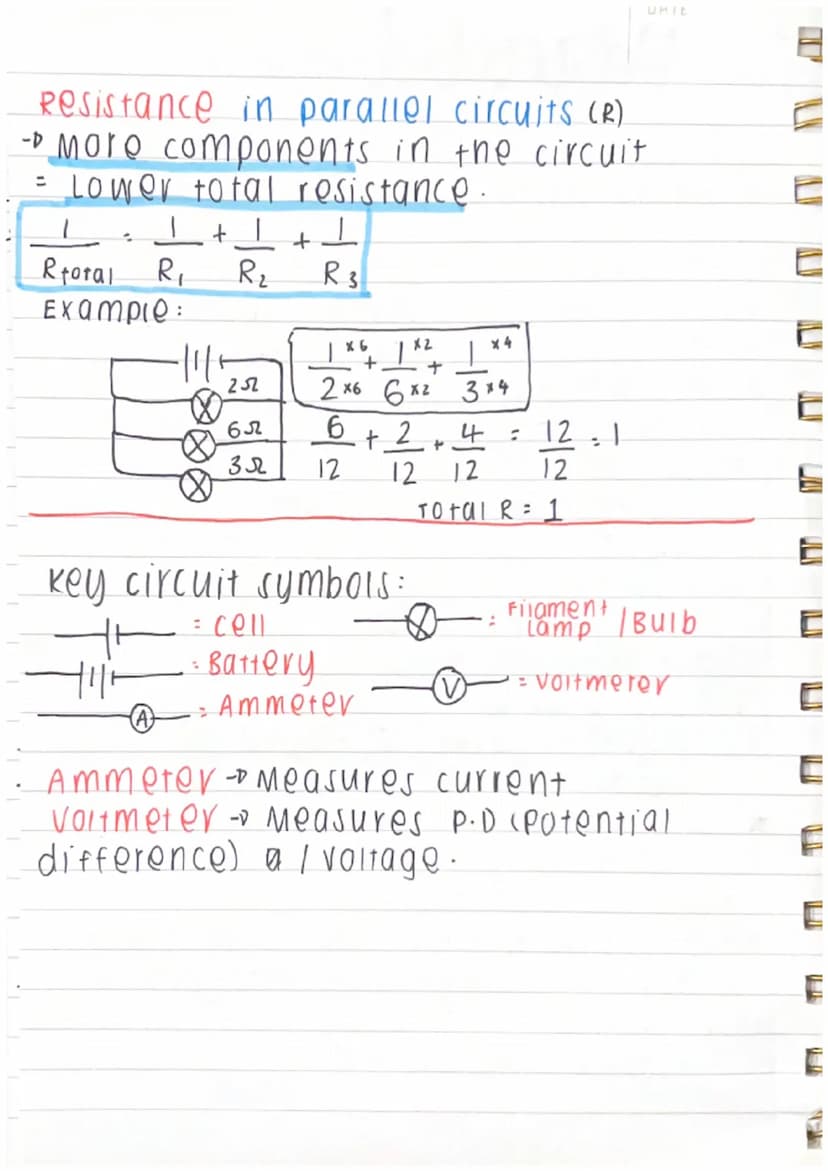 DATE
Resistance in parallel circuits (R)
→ More components in the circuit
= Lower total resistance.
1/Rtotal = 1/R₁ + 1/R₂ + 1/R₃
Example:
2Ω
6Ω
3Ω
1×6/2×6 + 1×2/6×2 + 1×4/3×4
6/12 + 2/12 + 4/12 = 12/12 = 1
Total R = 1
Key circuit symbols:
= Cell
= Filament Lamp / Bulb
= Battery
V = Voltmeter
A = Ammeter
Ammeter → Measures current
Voltmeter → Measures P.D (Potential
difference) a / Voltage.